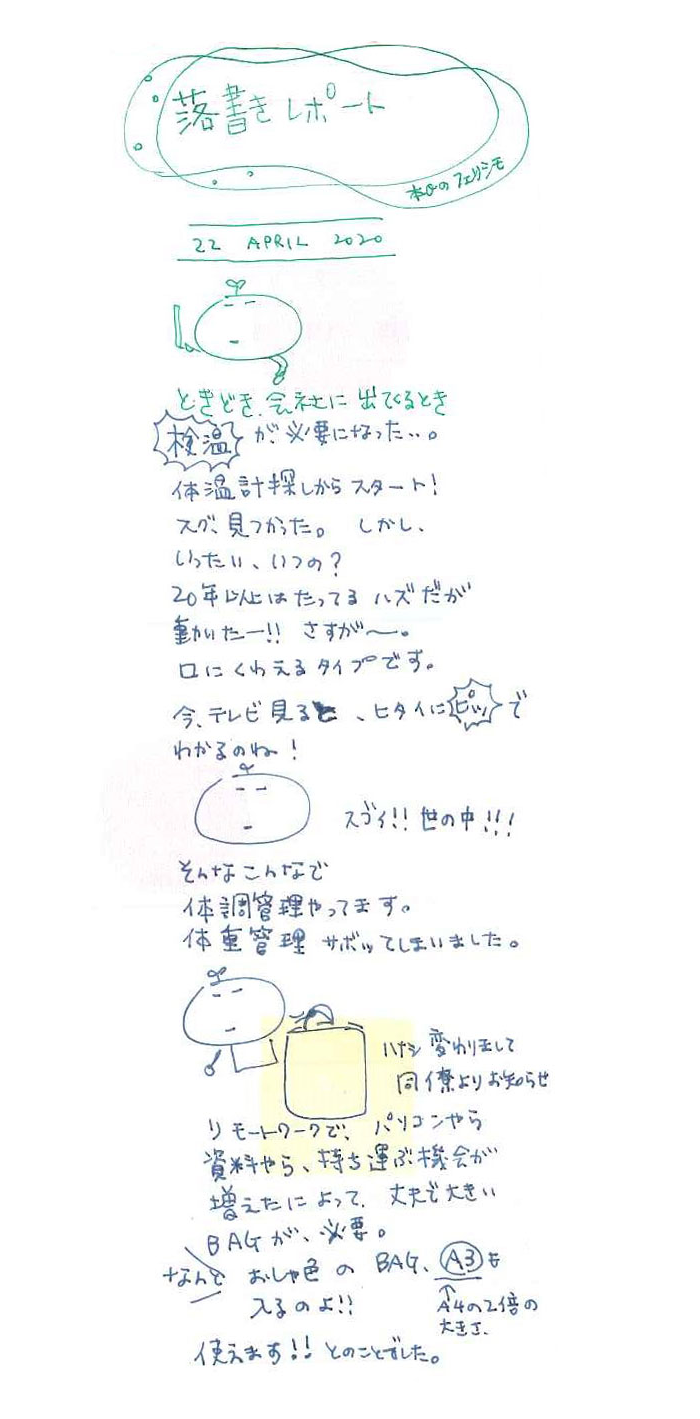 落書きレポート
本日のフェリシモ
22 APRIL 2020
ときどき、会社に出てくるとき
検温が必要になった…。
体温計探しからスタート!
スグ、見つかった。しかし、
いったい、いつの?
20年以上はたってるハズだが
動いたー!! さすが〜。
口にくわえるタイプです。
今、テレビ見ると、ヒタイにピッで
わかるのね!
スゴイ!! 世の中!!!
そんなこんなで
体調管理やってます。
体重管理サボッてしまいました。
ハナシ変わりまして
同僚よりお知らせ
リモートワークで、パソコンやら
資料やら、持ち運ぶ機会が
増えたによって、丈夫で大きい
BAGが、必要。
なんと おしゃ色のBAG、A3も
入るのよ!!
A4の2倍の
大きさ、
使えます!! とのことでした。